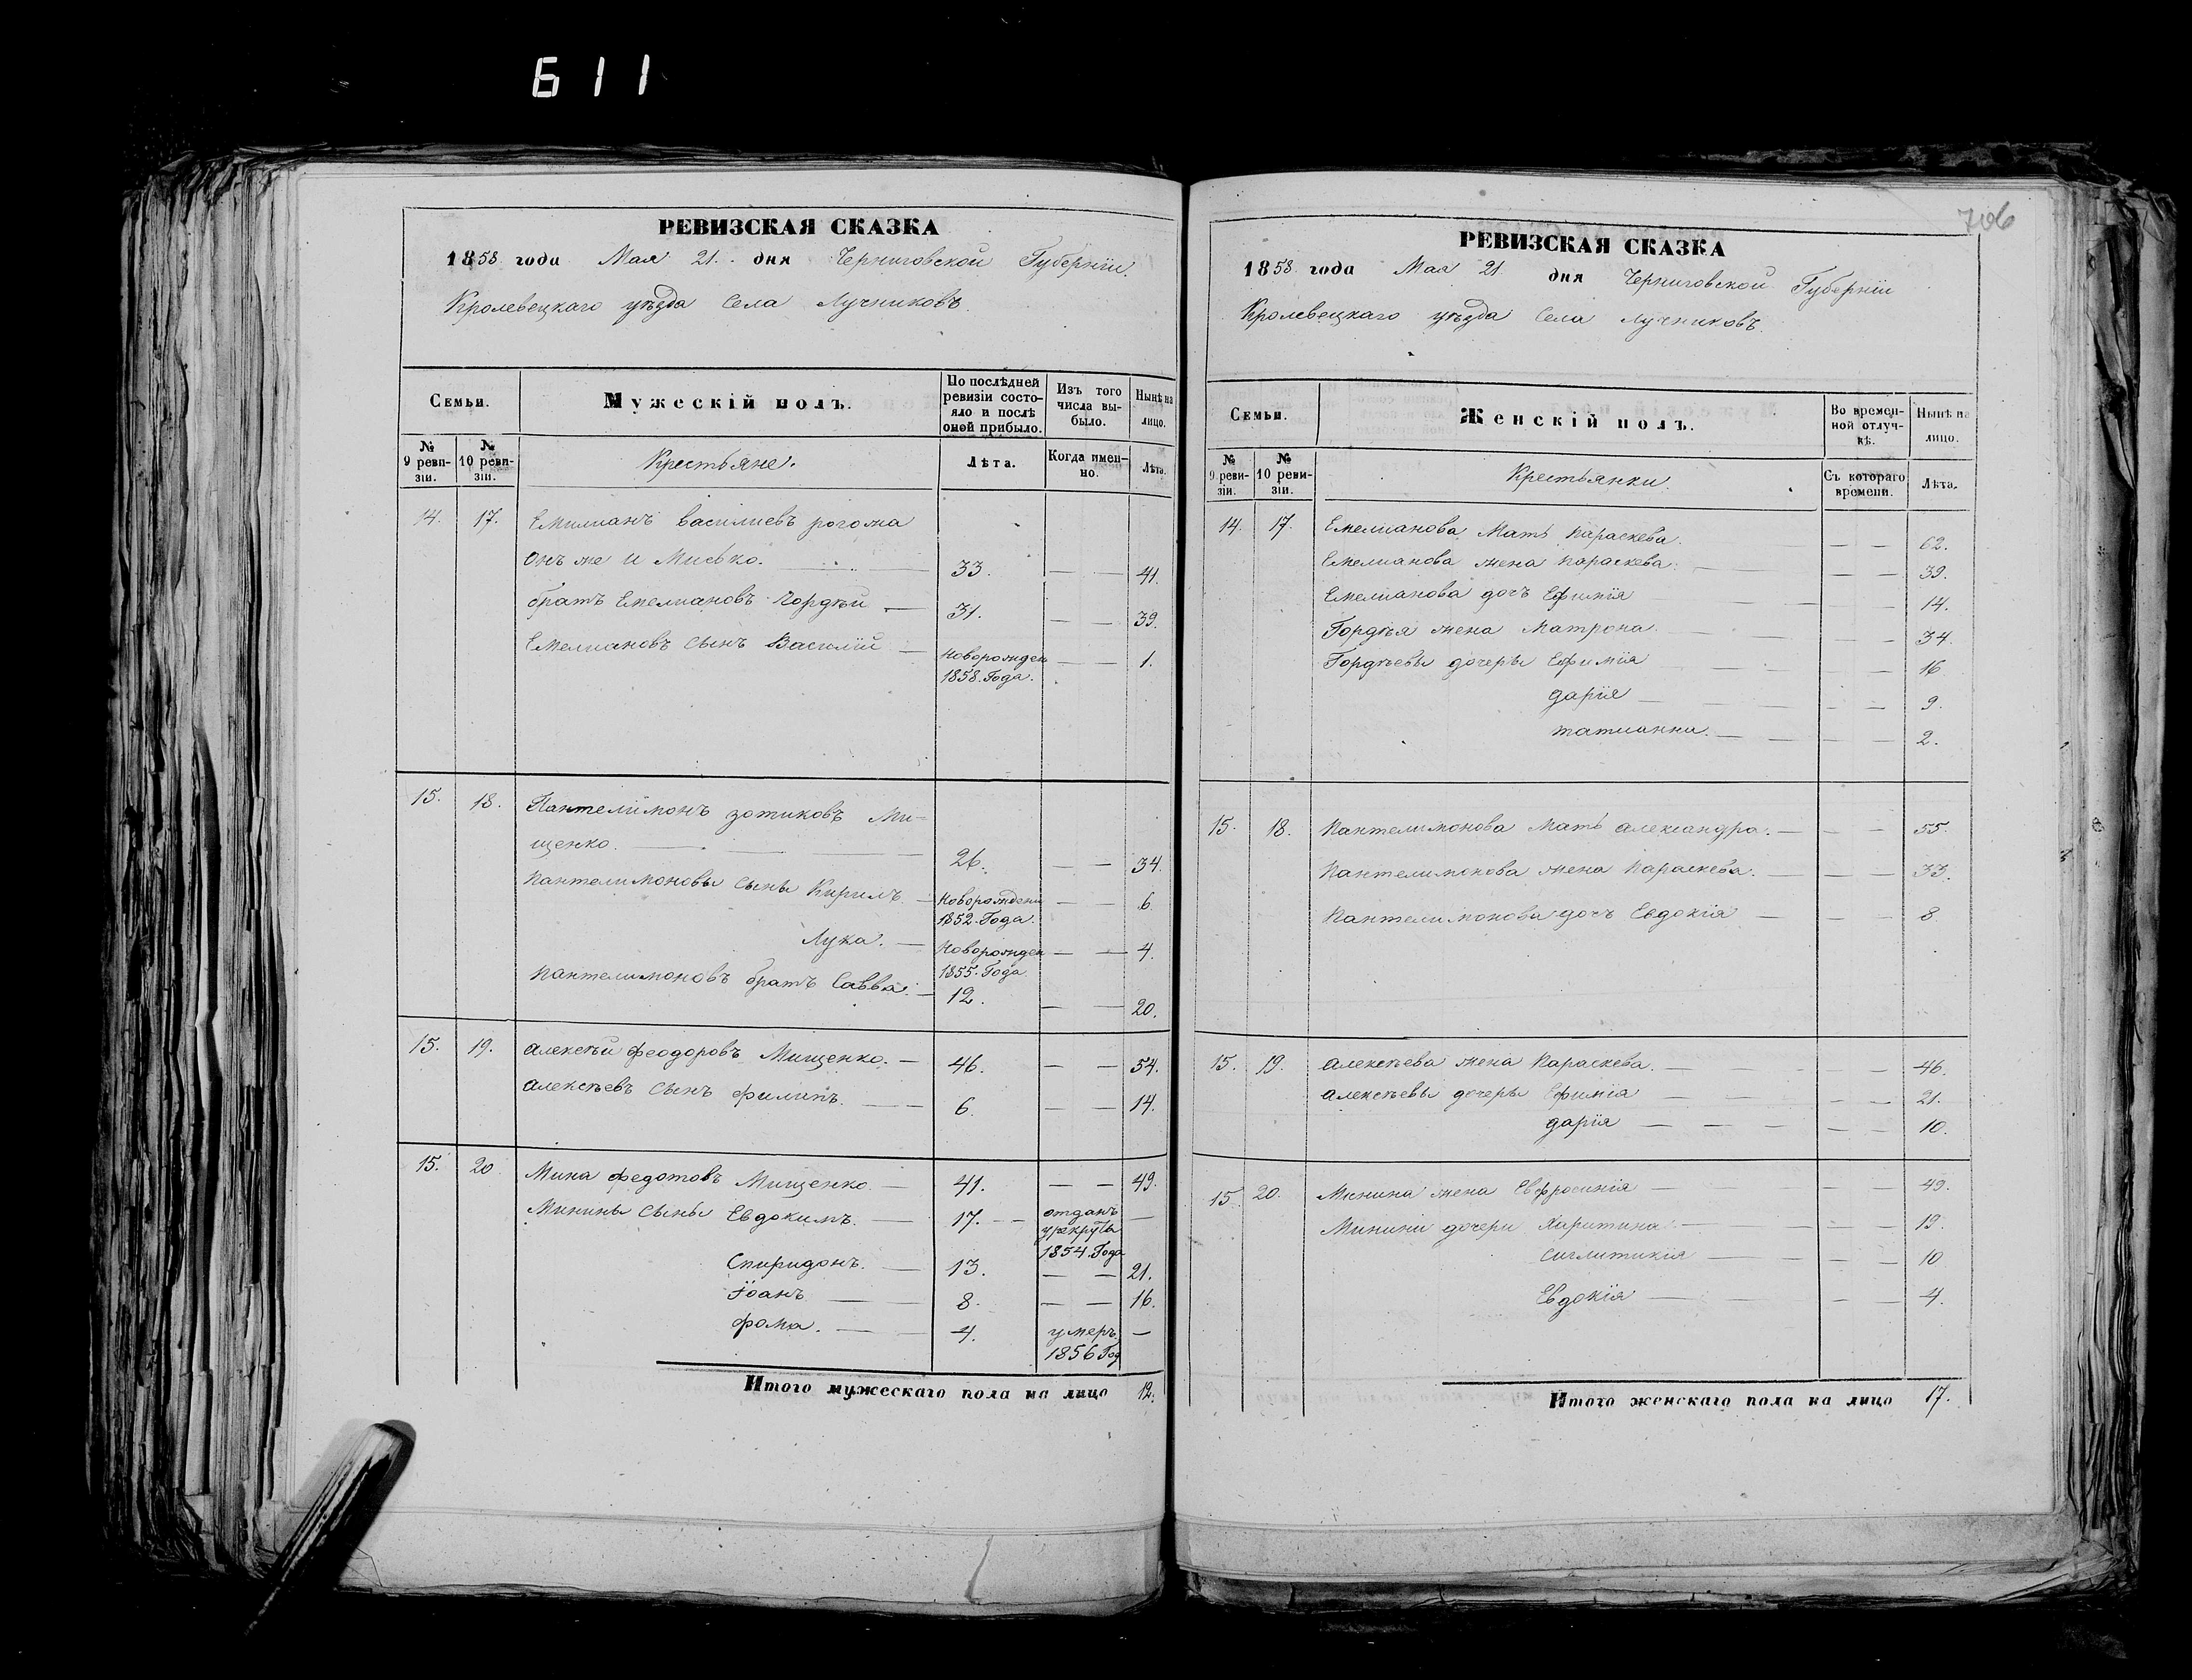 611
РЕВИЗСКАЯ СКАЗКА
1858 года Мая 21. дня Черниговской Губерніи.
Кролевецкаго уѣзда Села Лучниковъ.
Семьи.
Мужескій полъ.
По послѣдней ревизіи состояло и послѣ оной прибыло.
Изъ того числа выбыло.
Нынѣ на лицо.
№ 9 ревизіи.
№ 10 ревизіи.
Крестьяне.
Лѣта.
Когда именно.
Лѣта.
14. 17. Емилианъ василиевъ рогома
Онъ же и Мисько. 33. — — 41.
братъ Емелиановъ Гордѣй — 31. — — 39.
Емелиановъ Сынъ Василій — Новорожден — — 1.
1858. Года.
15. 18. Пантелиімонъ зотиковъ Ми-
щенко. — 26. — — 34.
Пантелимоновы Сыны Кирилъ — Новорожденъ — — 6
1852. Года.
Лука. — Новорожден — — 4.
1855. Года.
Пантелимоновъ братъ Савва. — 12. — — 20.
15. 19. Алексѣй феодоровъ Мищенко. — 46. — — 54.
Алексѣевъ Сынъ филипъ. — 6. — — 14.
15. 20 Мина федотовъ Мищенко — 41. — — 49.
Минины Сыны Евдокимъ. — 17. — отданъ —
урекруты
1854. Года
Спиридонъ. — 13. — — 21.
Їоанъ — 8. — — 16.
фома. — 4. умеръ. —
1856 Год
Итого мужескаго пола на лицо 12.
706
РЕВИЗСКАЯ СКАЗКА
1858 года Мая 21 дня Черниговской Губерніи
Кролевецкаго уѣзда Села Лучниковъ.
Семьи.
Женскій полъ.
Во временной отлучкѣ.
Нынѣ на лицо.
№ 9 ревизіи.
№ 10 ревизіи.
Крестьянки.
Съ котораго времени.
Лѣта.
14. 17. Емелианова Мать параскева. — — 62.
Емелианова жена параскева. — — — 39.
Емелианова дочь Ефимія — — — 14.
Гордѣя жена Матрона. — — — 34
Гордѣевы дочеры Ефимія — — — 16
дарія — — — 9.
татианна. — — — 2.
15. 18. Пантелимонова Мать александра. — — — 55.
Пантелимонова жена Параскева. — — — 33.
Пантелимонова дочь Евдокія — — — 8
15. 19. Алексѣева жена Параскева. — — 46.
Алексѣевы дочеры Ефимія — — — 21.
дарія — — — 10.
15 20. Минина жена Евфросинія — — — 49.
Минини дочери Харитина — — — 19.
Сиглитикія — — — 10
Евдокія — — — 4.
Итого женскаго пола на лицо 17.